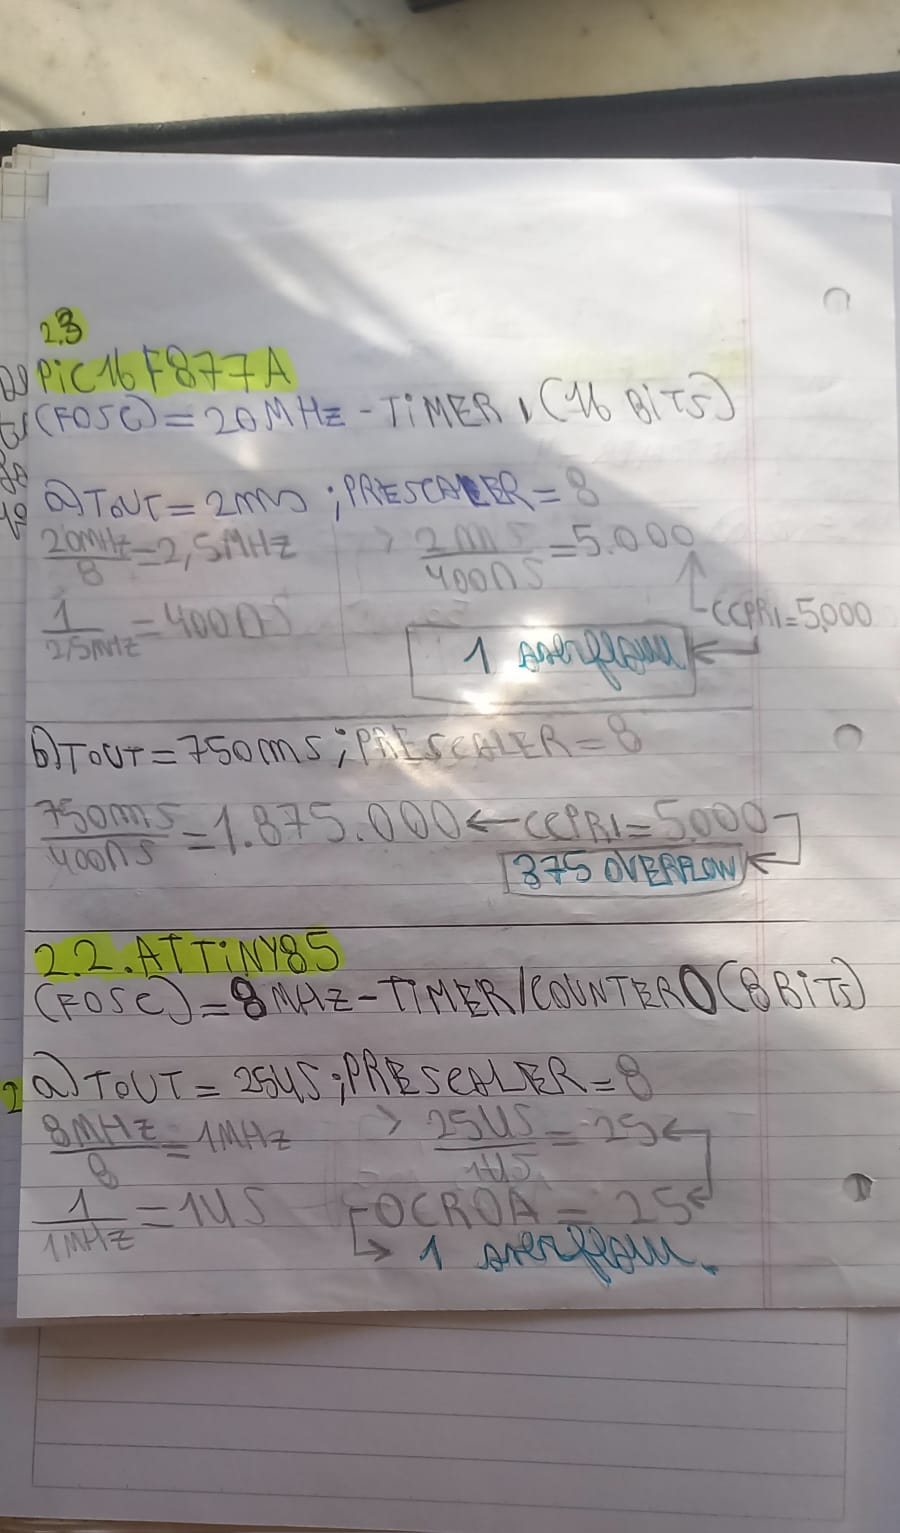 2.3
PiC16F877A
(FOSC) = 20MHz - TiMER 1 (16 BiTS)
a) TOUT = 2ms ; PRESCALER = 8
20MHz/8 = 2,5MHz > 2mS/400nS = 5.000
1/2,5MHz = 400nS CCPR1=5,000
1 overflow
b) TOUT = 750ms ; PRESCALER = 8
750mS/400nS = 1.875.000 ← CCPR1 = 5000
375 OVERFLOW
2.2. ATTiNY85
(FOSC) = 8MHz - TiMER/COUNTER 0 (8 BiTs)
2 a) TOUT = 25uS ; PRESCALER = 8
8MHz/8 = 1MHz > 25uS/1uS = 25
1/1MHz = 1uS OCR0A = 25
→ 1 overflow.